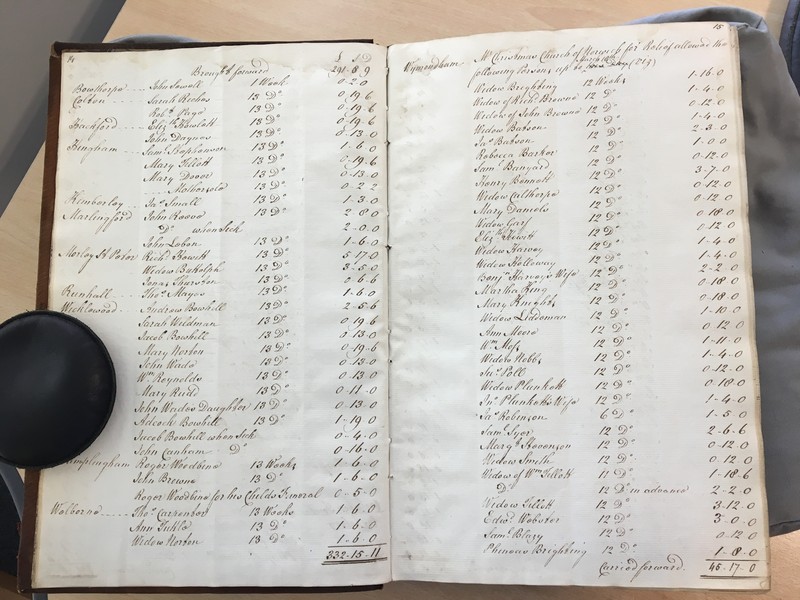 14
£ S D
Brought forward 291-8-9
Bowthorpe John Sowell 1 Week 0-2-0
Colton Sarah Riches 13 Do 0-19-6
Robt Page 13 Do 0-19-6
Hackford Elizth Howlatt 13 Do 0-19-6
John Daynes 13 Do 0-13-0
Hingham Saml Stephenson 13 Do 1-6-0
Mary Tillott 13 Do 0-19-6
Mary Doove 13 Do 0-13-0
Mothersole 0-2-2
Kimberley Jno Small 13 Do 1-3-0
Marlingford John Reeve 13 Do 2-8-0
Do when Sick 2-0-0
John Lebon 13 Do 1-6-0
Morley St Peter Richd Howitt 13 Do 5-17-0
Widow Buttolph 13 Do 3-5-0
Jonas Thurston 13 Do 2-6-6
Runhall Thos Mayes 13 Do 1-6-0
Wicklewood Andrew Bowhill 13 Do 2-5-6
Sarah Weldman 13 Do 0-19-6
Jacob Bowhill 13 Do 0-13-0
Mary Norton 13 Do 0-19-6
John Wade 13 Do 0-13-0
Wm Reynolds 13 Do 0-13-0
Mary Reid 13 Do 0-11-0
John Wades Daughter 13 Do 0-13-0
Adcock Bowhill 13 Do 1-19-0
Jacob Bowhill when Sick 0-4-0
John Canham Do 0-16-0
Wramplingham Roger Woodbine 13 Weeks 1-6-0
John Browne 13 Do 1-6-0
Roger Woodbine for his Childs Funeral 0-5-0
Welborne Thos Carpenter 13 Weeks 1-6-0
Ann 13 Do 1-6-0
Widow Norton 13 Do 1-6-0
332-15-11
15
Wymondham Mr Christmas Church of Norwich for Relief allowed the
following Persons up to
Widow Brighting 12 Weeks 1-16-0
Widow of Richd Browne 12 Do 1-4-0
Widow of John Browne 12 Do 0-12-0
Widow Batson 12 Do 1-4-0
Jas Batson 12 Do 2-3-0
Rebecca Barker 12 Do 1-0-0
Saml Bunyard 12 Do
Henry Bennett 12 Do 0-12-0
Widow Calthorpe 12 Do 3-7-0
Mary Daniels 12 Do 0-12-0
Widow Gay 12 Do 0-12-0
Elizth Hewitt 12 Do 0-18-0
Widow Harvey 12 Do 1-12-0
Widow Holloway 12 Do 1-4-0
Benjn Harvey's Wife 12 Do 1-4-0
Martha King 12 Do 2-2-0
Mary Knights 12 Do 0-18-0
Widow Liddeman 12 Do 0-18-0
Ann Moore 12 Do 1-10-0
Wm Moss 12 Do 0-12-0
Widow Nobbs 12 Do 1-11-0
Poll 12 Do 1-4-0
Widow Plunkett 12 Do 0-12-0
Jno Plunketts Wife 12 Do 0-18-0
Jas Robinson 6 Do 1-4-0
Saml Syer 12 Do 1-5-0
Margt Stevenson 12 Do 2-6-6
Widow Smith 12 Do 0-12-0
Widow of Wm Tillott 11 Do 0-12-0
Do 12 Do in advance 1-18-6
Widow Tillott 12 Do 2-2-0
Edwd Webster 12 Do 3-12-0
Saml Blazy 12 Do 3-0-0
Phineas Brighting 12 Do 0-12-0
1-8-0
Carried forward 45-17-0